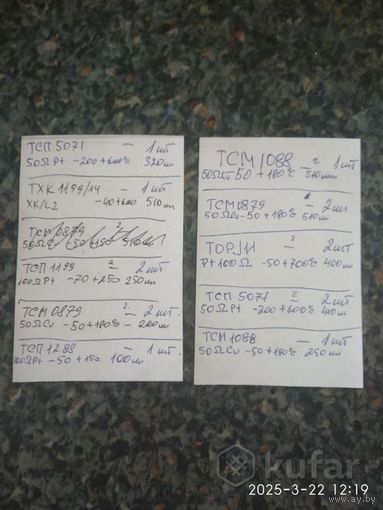 ТСП 5071 — 1 шт
50Ω Pt -200 +600°C 320 мм
ТХК 1199/14 — 1 шт
ХК/L2 -40+600 510 мм
ТСМ 0879
ТСП 1199 — 2 шт
100Ω Pt -70 +250 250 мм
ТСМ 0879 — 2 шт.
50Ω Cu -50 +180°C — 200 мм
ТСП 1288 — 1 шт
100Ω Pt -50 +150 100 мм
ТСМ 1088 — 1 шт
50Ω -50 +180°C 310 мм
ТСМ 0879 — 2 шт
50Ω Cu -50 +180°C 510 мм
ТОР/11 — 2 шт
Pt 100Ω -50 +700°C 400 мм
ТСП 5071 — 2 шт
50Ω Pt -200 +600°C 410 мм
ТСМ 1088 — 1 шт
50Ω Cu -50 +180°C 250 мм
kufar
2025-3-22 12:19
www.ay.by